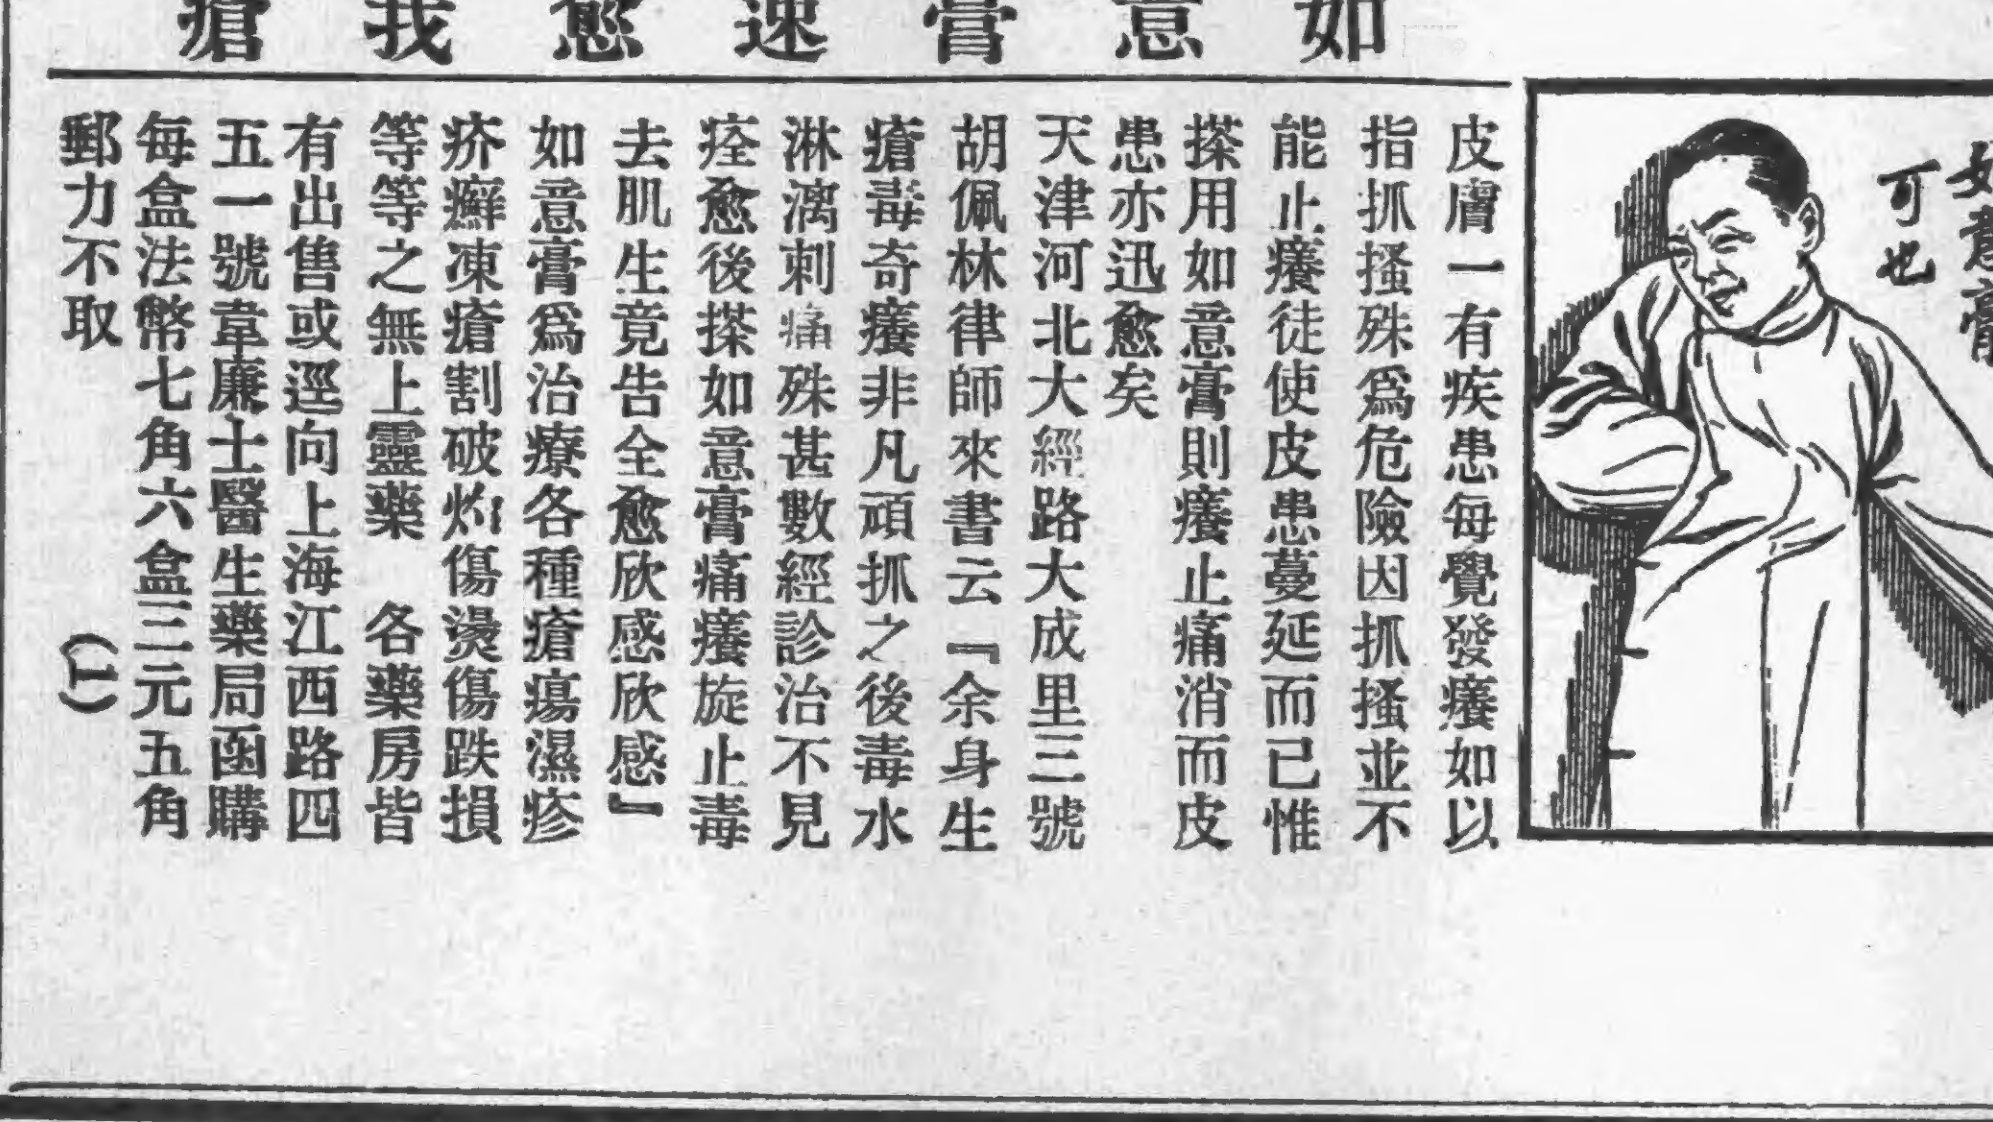 如意膏速愈我瘡
如意膏
可也
皮膚一有疾患每覺發癢如以
指抓搔殊爲危險因抓搔並不
能止癢徒使皮患蔓延而已惟
搽用如意膏則癢止痛消而皮
患亦迅愈矣
天津河北大經路大成里三號
胡佩林律師來書云『余身生
瘡毒奇癢非凡頑抓之後毒水
淋漓刺痛殊甚數經診治不見
痊愈後搽如意膏痛癢旋止毒
去肌生竟告全愈欣感欣感』
如意膏爲治療各種瘡瘍濕疹
疥癬凍瘡割破灼傷燙傷跌損
等等之無上靈藥 各藥房皆
有出售或逕向上海江西路四
五一號韋廉士醫生藥局函購
每盒法幣七角六盒三元五角
郵力不取 (上)